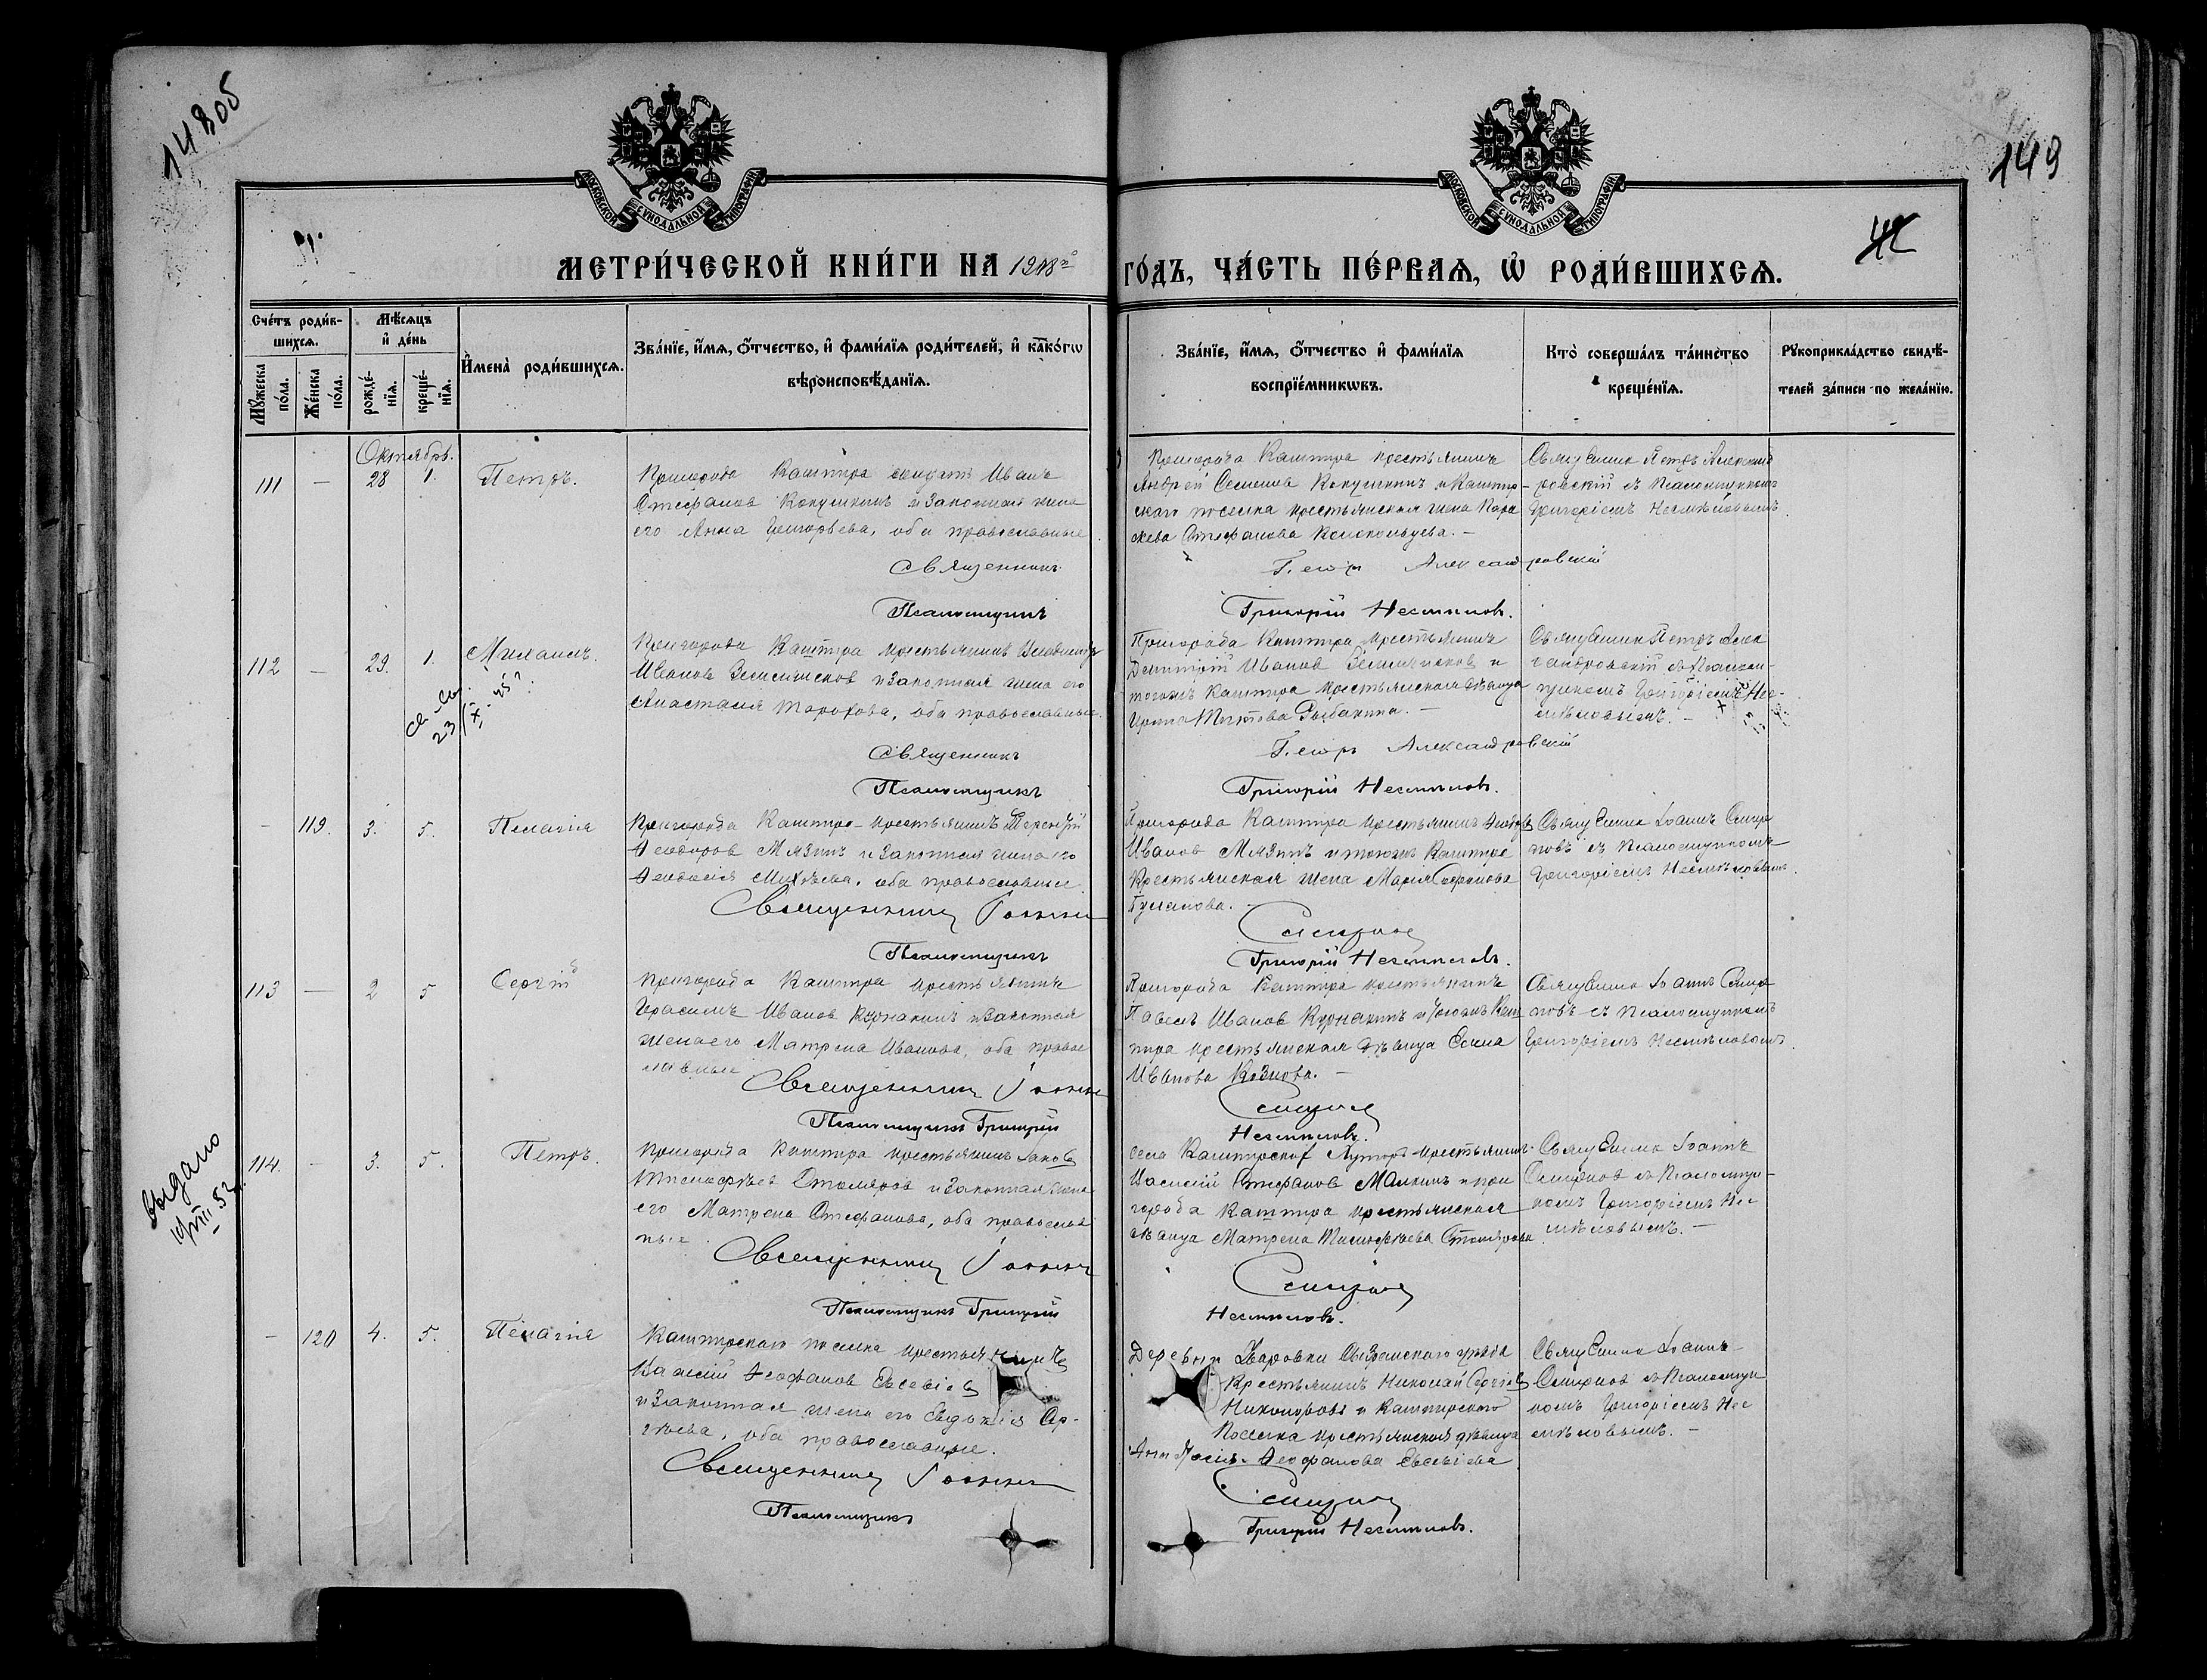 148об
149
42
МОСКОВСКОЙ СѴНОДАЛЬНОЙ ТИПОГРАФІИ
МОСКОВСКОЙ СѴНОДАЛЬНОЙ ТИПОГРАФІИ
МЕТРИ́ЧЕСКОЙ КНИ́ГИ НА 1908й
ГО́ДЪ, ЧА́СТЬ ПЕ́РВАѦ, Ѡ҆ РОДИ́ВШИХСѦ.
Сче́тъ роди́в-
шихсѧ.
Мꙋ́жеска по́ла.
Же́нска по́ла.
Мѣ́сѧцъ
и҆ де́нь
рожде́-
нїѧ.
креще́-
нїѧ.
И҆мена̀ роди́вшихсѧ.
Зва́нїе, и҆́мѧ, ѻ҆́тчество, и҆ фами́лїѧ роди́телей, и҆ како́гѡ
вѣроисповѣ́данїѧ.
Зва́нїе, и҆́мѧ, ѻ҆́тчество и҆ фами́лїѧ
воспрїе́мникѡвъ.
Кто̀ соверша́лъ та́инство
креще́нїѧ.
Рꙋкоприкла́дство свидѣ́-
телей за́писи по жела́нїю.
Октябрь.
111 — 28 1. Петръ.
Пригорода Кашпира солдатъ Иванъ
Стефановъ Кокушкинъ и законная жена
его Анна Григорьева, оба православные
Священникъ
Псаломщикъ
Пригорода Кашпира крестьянинъ
Андрей Семенов Кокушкинъ и Кашпир-
скаго поселка крестьянская жена Пара
скева Стефанова Колокольцева. —
Петръ Александровскій
Григорій Несмѣловъ.
Священник Петръ Александ
ровскій съ псаломщикомъ
Григоріемъ Несмѣловымъ.
112 — 29. 1. Михаилъ.
Пригорода Кашпира крестьянинъ Владиміръ
Иванов и законная жена его
Анастасія оба православные.
Священникъ
Псаломщикъ
Пригорода Кашпира крестьянинъ
Димитрій Иванов и
тогожъ Кашпира крестьянская дѣвица
Рыбакина. —
Петръ Александровскій
Григорій Несмѣловъ.
Священник Петръ Алек
сандровскій съ псалом-
щикомъ Григоріемъ Нес-
мѣловымъ. —
— 119. 3. 5. Пелагія
Пригорода Кашпира крестьянинъ Терентій
Ѳеодоров Мязинъ и законная жена его
Ѳеодосія оба православные
Священникъ Іоаннъ
Псаломщикъ
Пригорода Кашпира крестьянинъ Ѳеодоръ
Иванов Мязинъ и тогожъ Кашпира
крестьянская жена Марія
Гуманова.
Смирнов
Григорій Несмѣловъ.
Священник Іоаннъ Смир
новъ съ псаломщикомъ
Григоріемъ Несмѣловымъ.
113 — 2 5 Сергій
Пригорода Кашпира крестьянинъ
Герасимъ Иванов Курнакинъ и законная
жена его Матрена Иванова, оба право
славные
Священникъ Іоаннъ
Псаломщикъ Григорій
Пригорода Кашпира крестьянинъ
Павелъ Иванов Курнакинъ и тогожъ Каш
пира крестьянская дѣвица
Иванова Козлова. —
Смирнов
Несмѣловъ.
Священник Іоаннъ Смир
новъ съ псаломщикомъ
Григоріемъ Несмѣловымъ.
выдано
114. — 3. 5. Петръ.
Пригорода Кашпира крестьянинъ Іаков
Тимофѣев Столяров и законная жена
его Матрена Стефанова, оба православ
ные
Священникъ Іоаннъ
Псаломщикъ Григорій
села Кашпирскій Хуторъ крестьянинъ
Василій Стефанов Малкинъ и при
города Кашпира крестьянская
дѣвица Матрена Тимофѣева Столярова
Смирнов
Несмѣловъ.
Священник Іоаннъ
Смирнов съ псаломщи-
комъ Григоріемъ Нес
мѣловымъ. —
— 120 4. 5. Пелагія
Кашпирскаго поселка крестьянинъ
Василій Ѳеофанов Евсевіев
и законная жена его Евдокія Сер-
гѣева, оба православные.
Священникъ Іоаннъ
Псаломщикъ
Деревни Уваровки Сызранскаго уѣзда
крестьянинъ Николай Сергіев
Никоноровъ и Кашпирскаго
поселка крестьянская дѣвица
Ѳеофанова Евсевіева
Смирнов
Григорій Несмѣловъ.
Священник Іоаннъ
Смирнов съ псаломщи
комъ Григоріемъ Нес
мѣловымъ. —